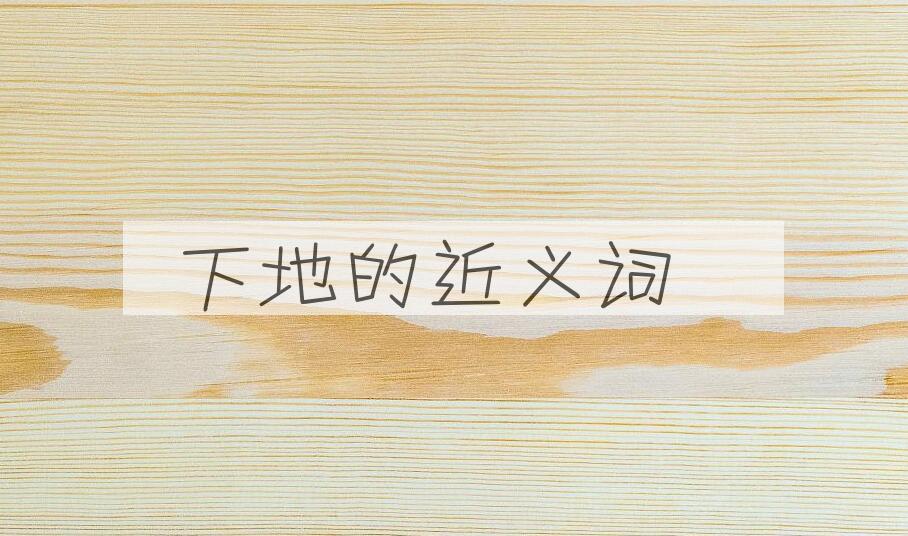 下地的近义词